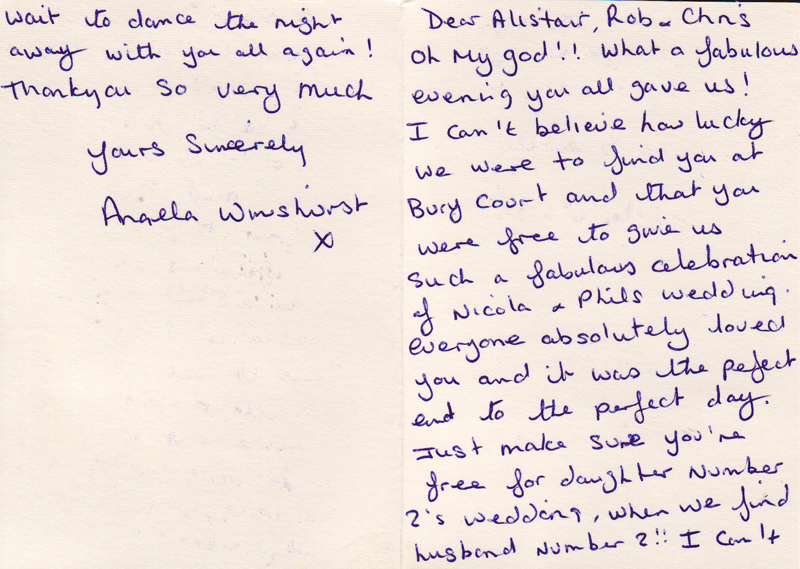 Dear Alistair, Rob & Chris
Oh My god!! What a fabulous
evening you all gave us!
I can't believe how lucky
we were to find you at
Bury Court and that you
were free to give us
such a fabulous celebration
of Nicola & Phils wedding.
everyone absolutely loved
you and it was the pefect
end to the perfect day.
Just make sure you're
free for daughter Number
2's wedding, when we find
husband Number 2!! I can't
wait to dance the night
away with you all again!
Thankyou so very much
Yours Sincerely
Angela Wimshurst
X